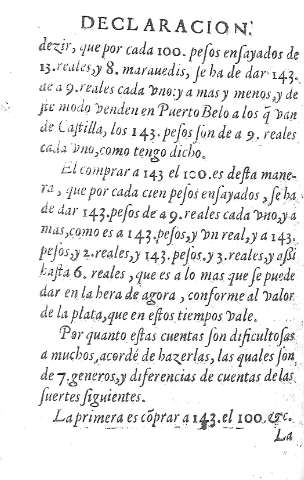 DECLARACION.
dezir, que por cada 100. pesos ensayados de
13. reales, y 8. marauedis, se ha de dar 143.
de a 9. reales cada vno: y a mas y menos, y de
ste modo venden en Puerto Belo a los q̃ van
de Castilla, los 143. pesos son de a 9. reales
cada vno, como tengo dicho.
El comprar a 143 el 100. es desta mane-
ra, que por cada cien pesos ensayados, se ha
de dar 143. pesos de a 9. reales cada vno, y a
mas, como es a 143. pesos, y vn real, y a 143.
pesos, y 2. reales, y 143. pesos, y 3. reales, y assi
hasta 6. reales, que es a lo mas que se puede
dar en la hera de agora, conforme al valor
de la plata, que en estos tiempos vale.
Por quanto estas cuentas son dificultosas
a muchos, acordé de hazerlas, las quales son
de 7. generos, y diferencias de cuentas de las
suertes siguientes.
La primera es cõprar a 143. el 100. &c.
La